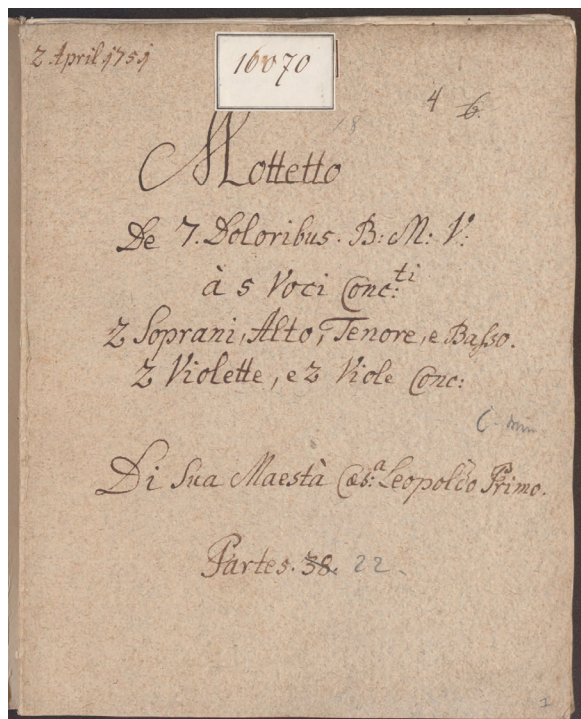 2 April 1751
16070
18
4 6.
Mottetto
De 7. Doloribus. B: M: V:
à 5 Voci Conc:ti
2 Soprani, Alto, Tenore, e Basso.
2 Violette, e 2 Viole Conc:
C-min.
Di Sua Maestà Cæs:a Leopoldo Primo.
Partes. 38. 22.
1